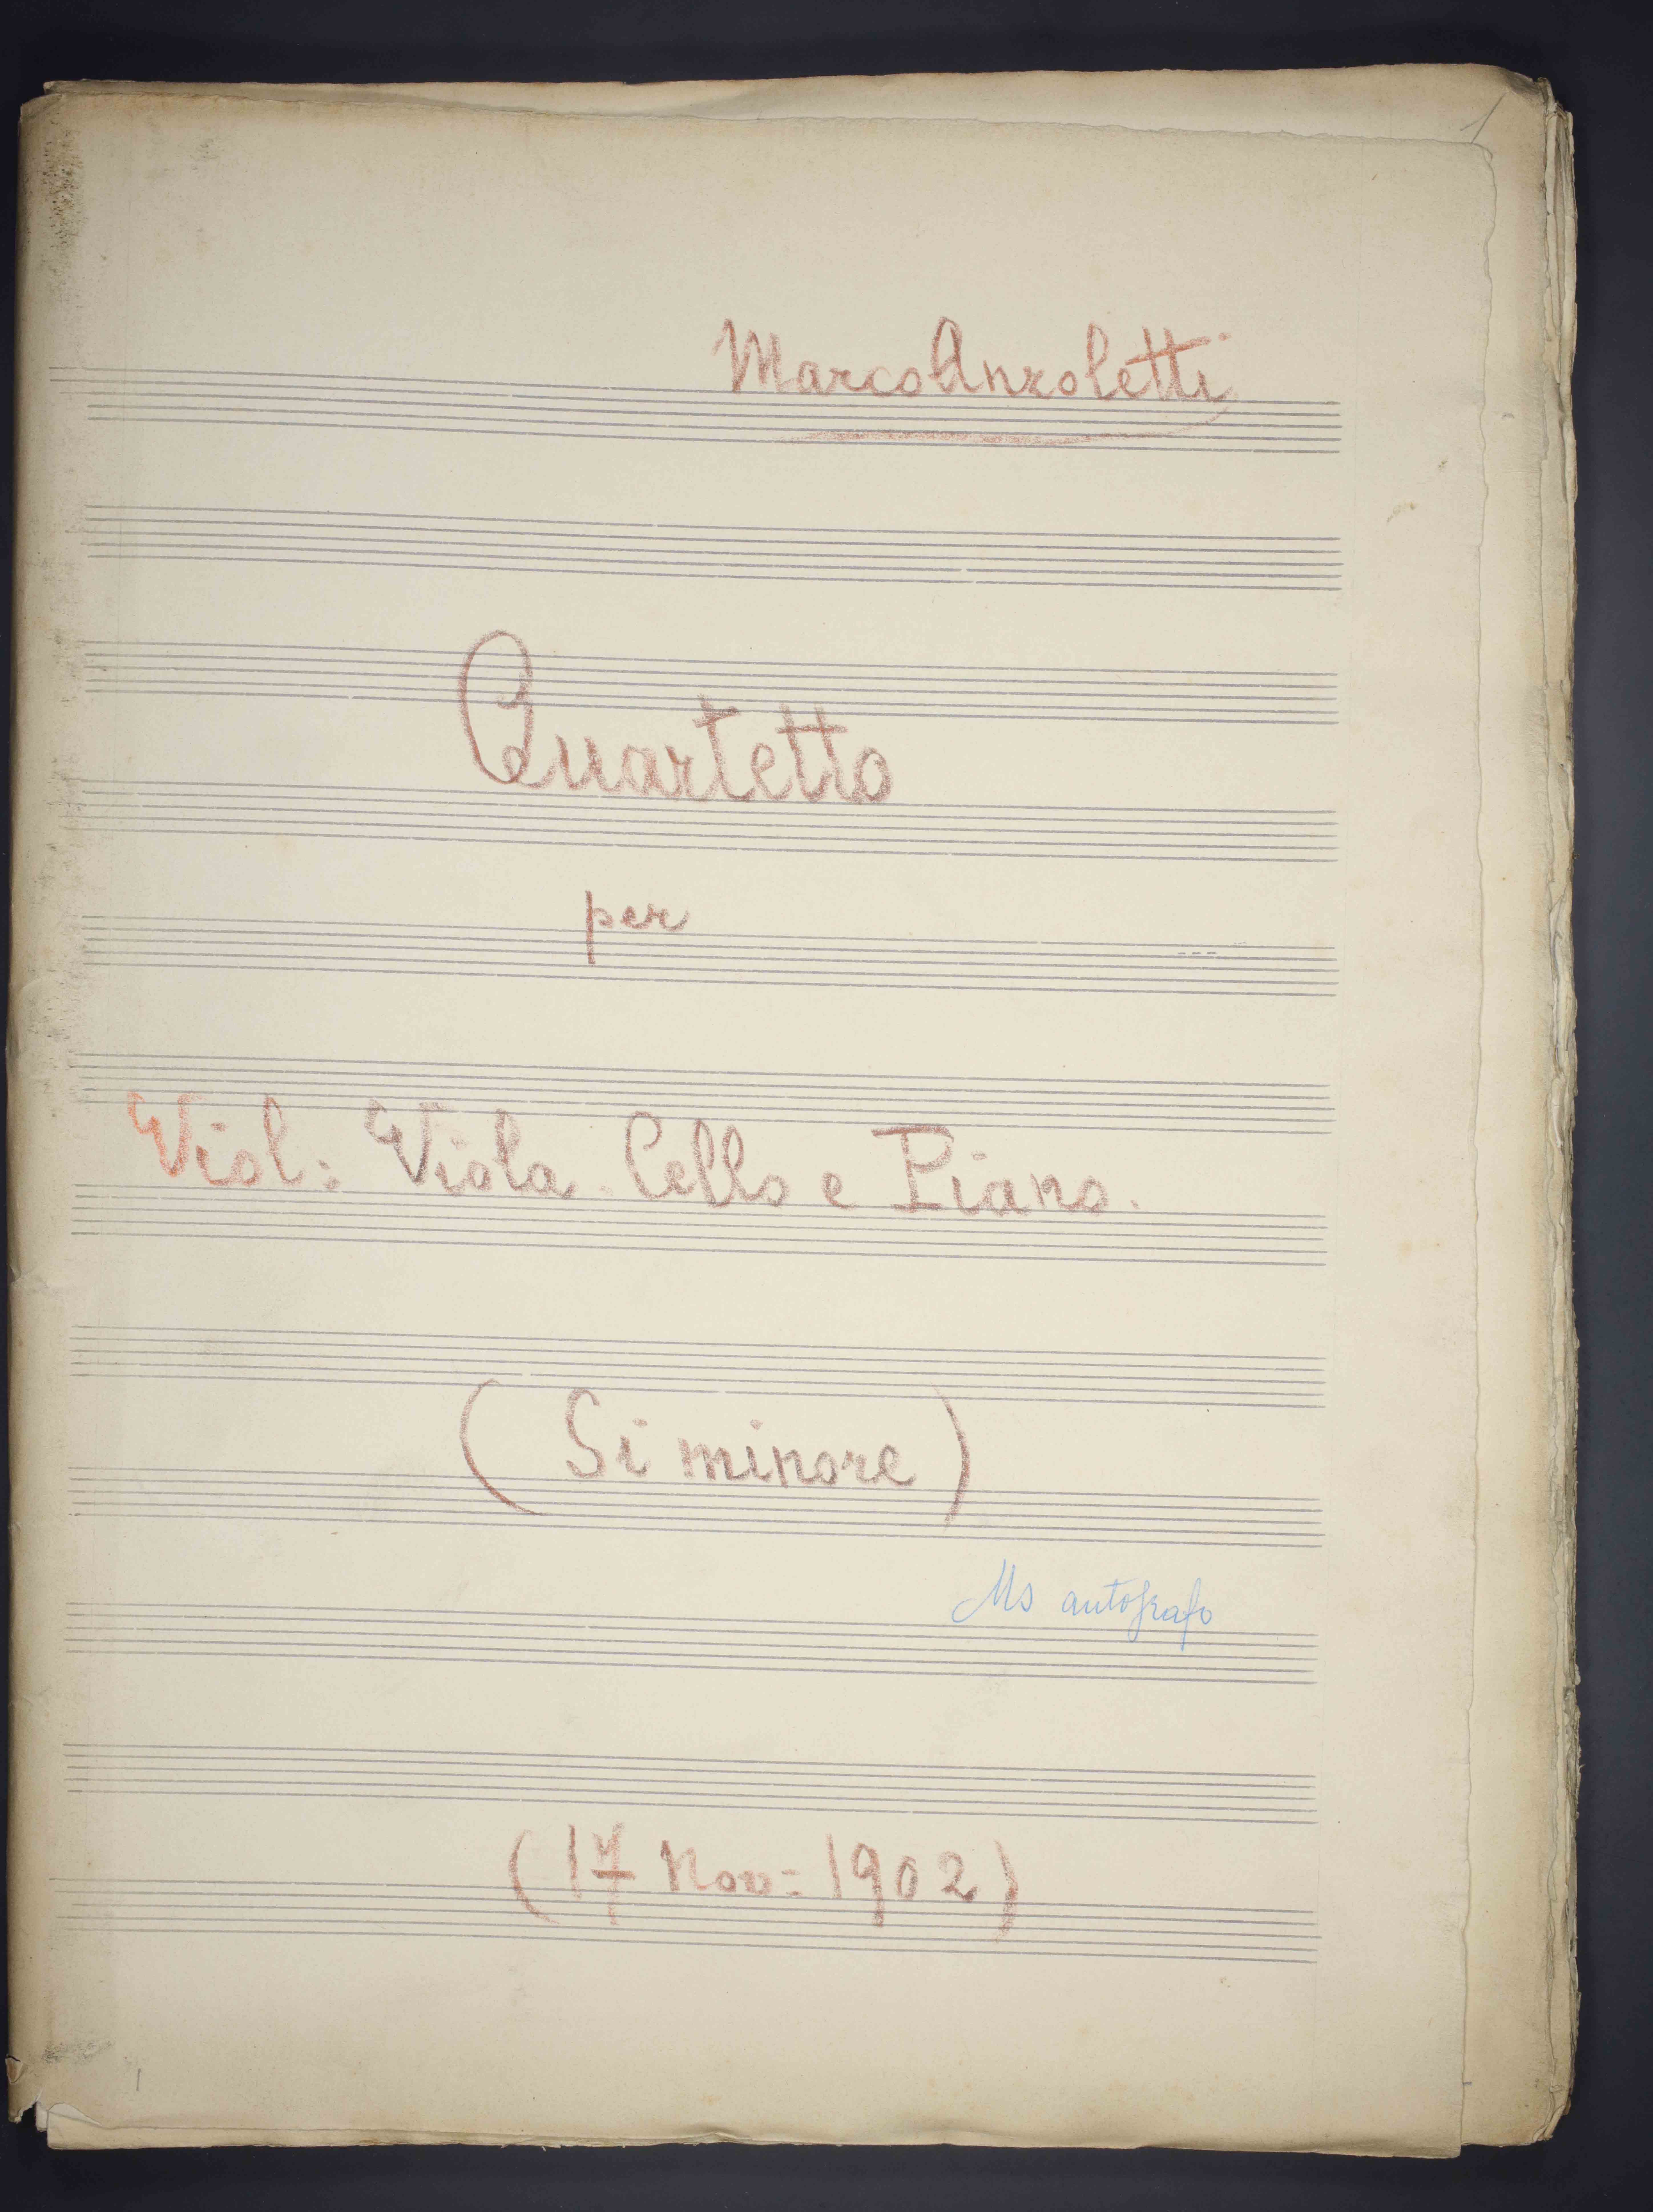 1
Marco Anzoletti
Quartetto
per
Viol: Viola. Cello e Piano.
(Si minore)
Ms autografo
(17 Nov= 1902)